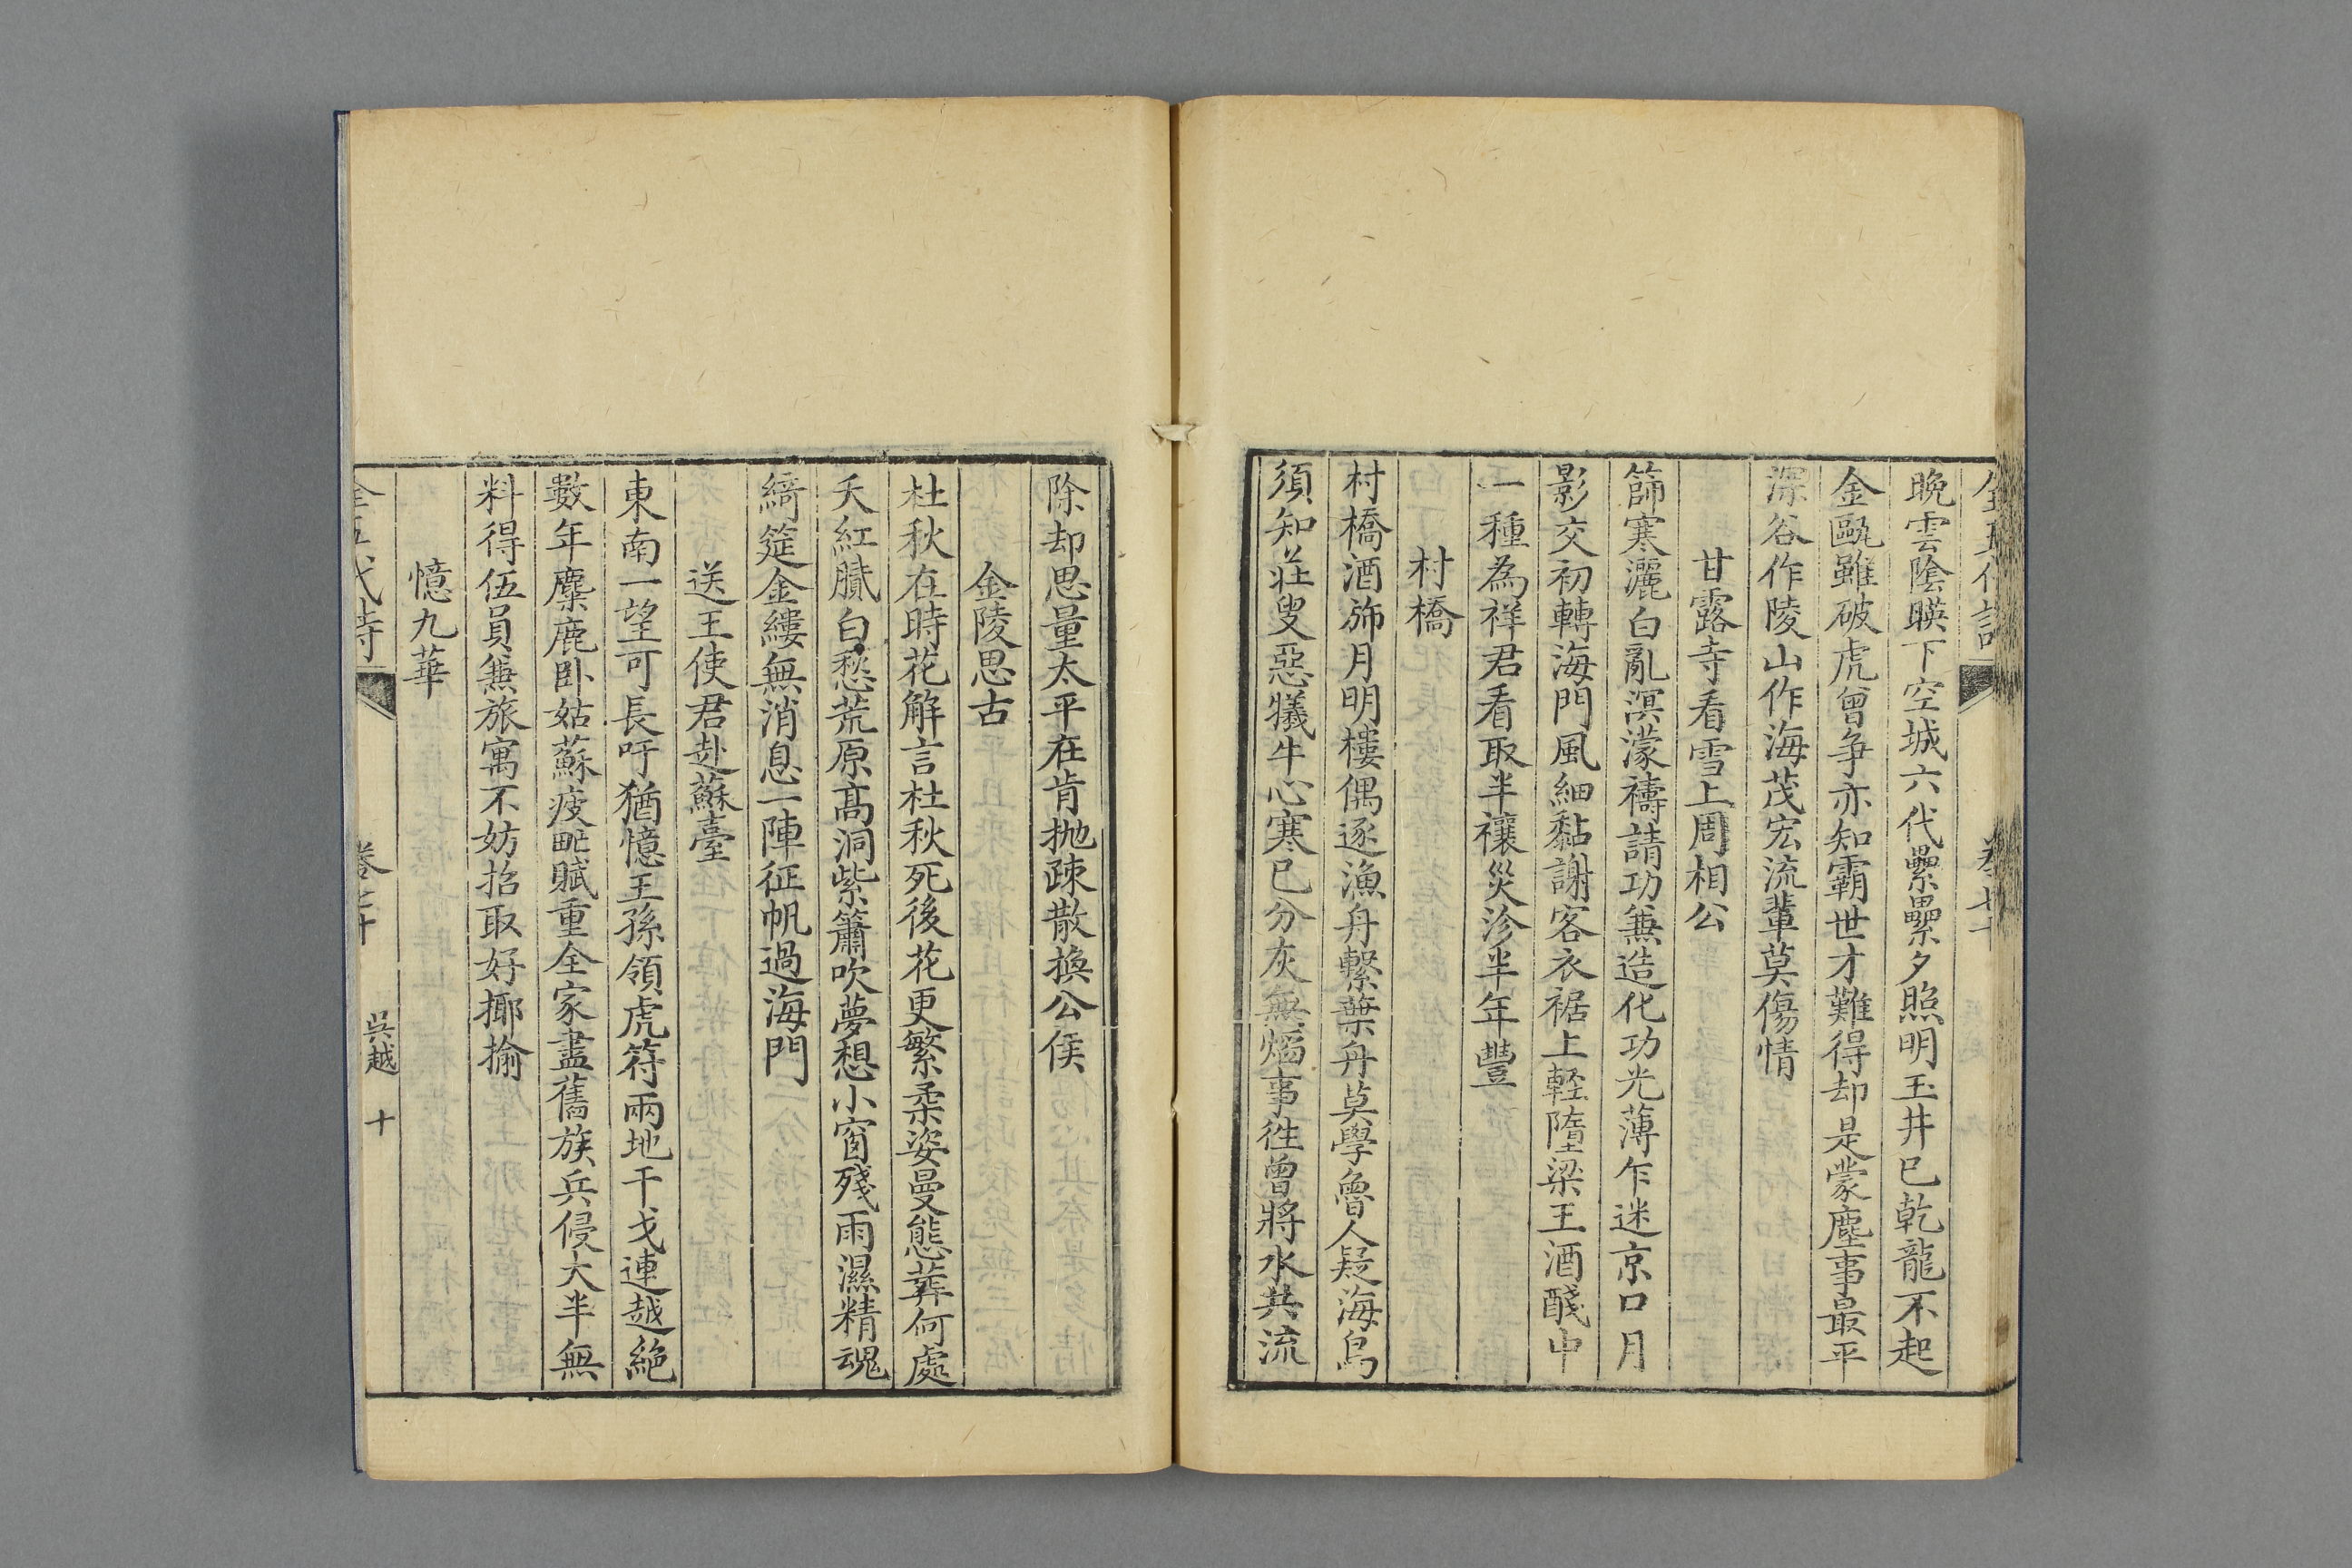 晚雲陰暎下空城六代纍纍夕照明玉井已乾龍不起
金甌雖破虎曾爭亦知霸世才難得却是蒙塵事最平
深谷作陵山作海茂宏流輩莫傷情
甘露寺看雪上周相公
篩寒灑白亂溟濛禱請功兼造化功光薄乍迷京口月
影交初轉海門風細黏謝客衣裾上輕墮梁王酒醆中
一種為祥君看取半禳災沴半年豐
村橋
村橋酒斾月明樓偶逐漁舟繫葉舟莫學魯人疑海鳥
須知莊叟惡犧牛心寒已分灰無熖事徃曾將水共流
除却思量太平在肯抛疎散換公侯
金陵思古
杜秋在時花解言杜秋死後花更繁柔姿曼態葬何處
夭紅膩白愁荒原高洞紫簫吹夢想小窗殘雨濕精魂
綺筵金縷無消息一陣征帆過海門
送王使君赴蘇臺
東南一望可長吁猶憶王孫領虎符兩地干戈連越絕
數年麋鹿卧姑蘇疲甿賦重全家盡舊族兵侵大半無
料得伍員兼旅寓不妨招取好揶揄
憶九華
全五代詩 卷七十 吳越 十